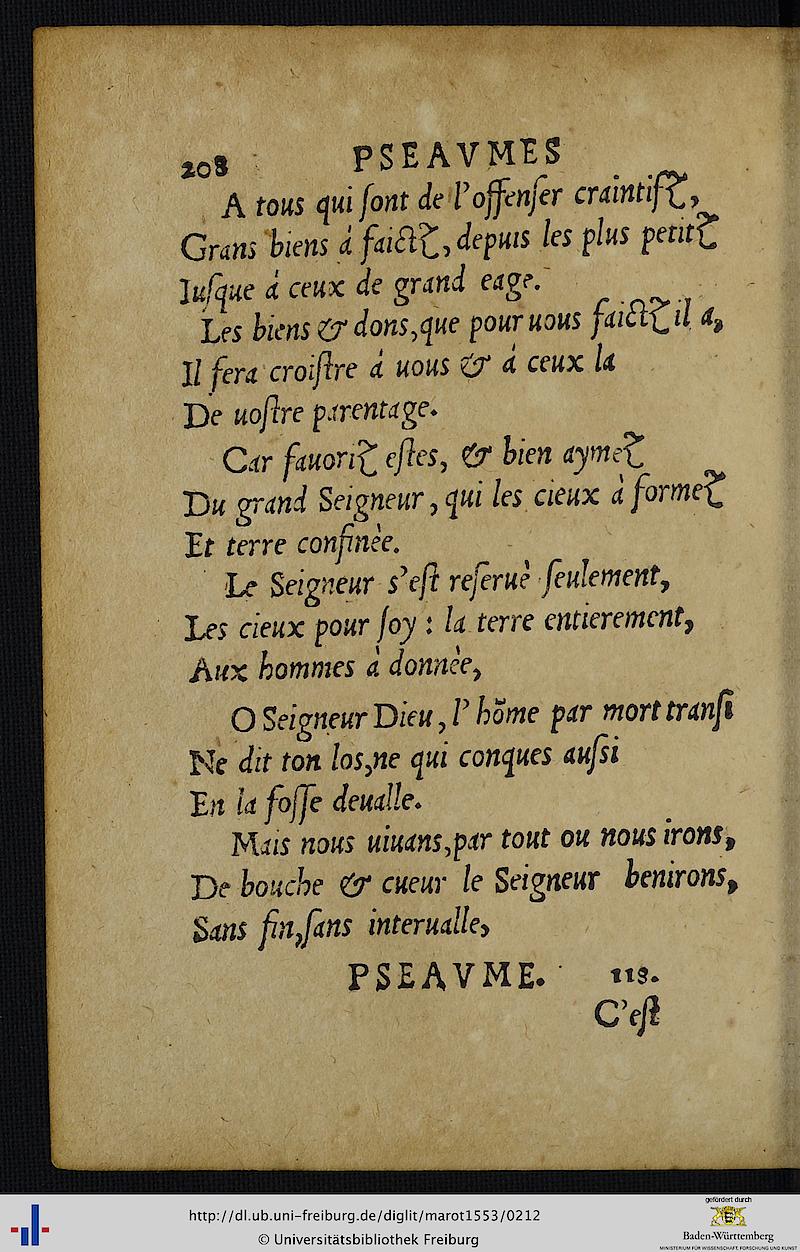 208 PSEAVMES
A tous qui ſont de l'offenſer craintifz,
Grans biens à faictz, depuis les plus petitz
Iuſque à ceux de grand eage.
Les biens & dons, que pour uous faictz il a,
Il fera croiſtre à uous & à ceux la
De uoſtre parentage.
Car fauoriz eſtes, & bien aymez
Du grand Seigneur, qui les cieux à formez
Et terre confinèe.
Le Seigneur s'eſt reſeruè ſeulement,
Les cieux pour ſoy : la terre entierement,
Aux hommes à donnèe,
O Seigneur Dieu, l' hõme par mort tranſi
Ne dit ton los, ne qui conques auſsi
En la foſſe deualle.
Mais nous uiuans, par tout ou nous irons,
De bouche & cueur le Seigneur benirons,
Sans fin, ſans interualle,
PSEAVME. 118.
C'eſt
http://dl.ub.uni-freiburg.de/diglit/marot1553/0212
© Universitätsbibliothek Freiburg
gefördert durch
Baden-Württemberg
MINISTERIUM FÜR WISSENSCHAFT, FORSCHUNG UND KUNST